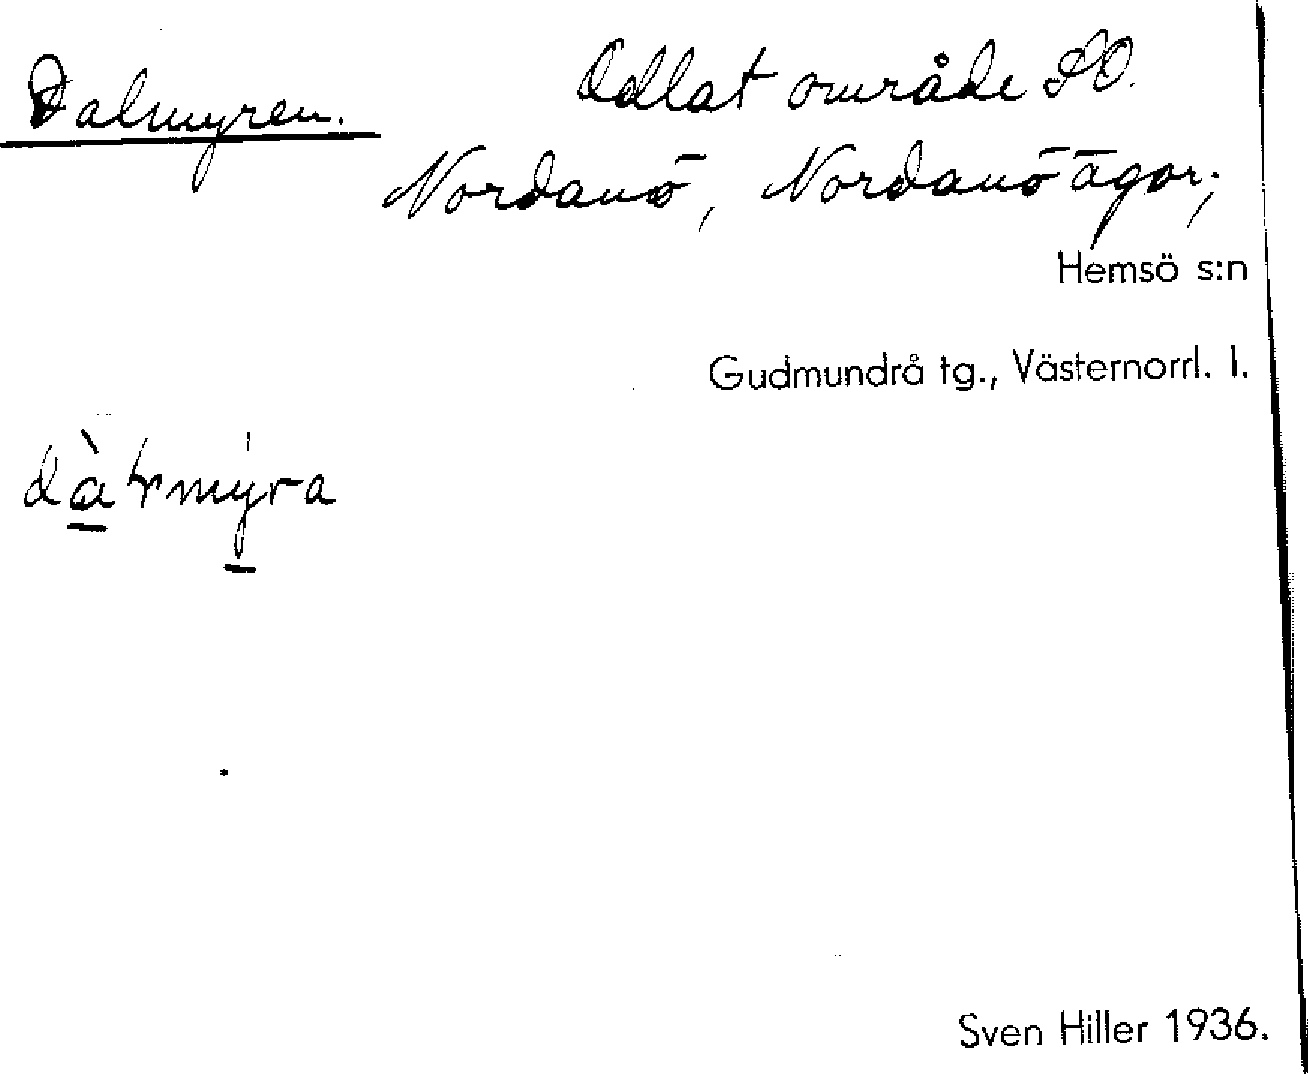 Dalmyren.
Odlat område SO.
Nordanö, Nordanö ägor;
Hemsö s:n
Gudmundrå tg., Västernorrl. l.
Sven Hiller 1936.